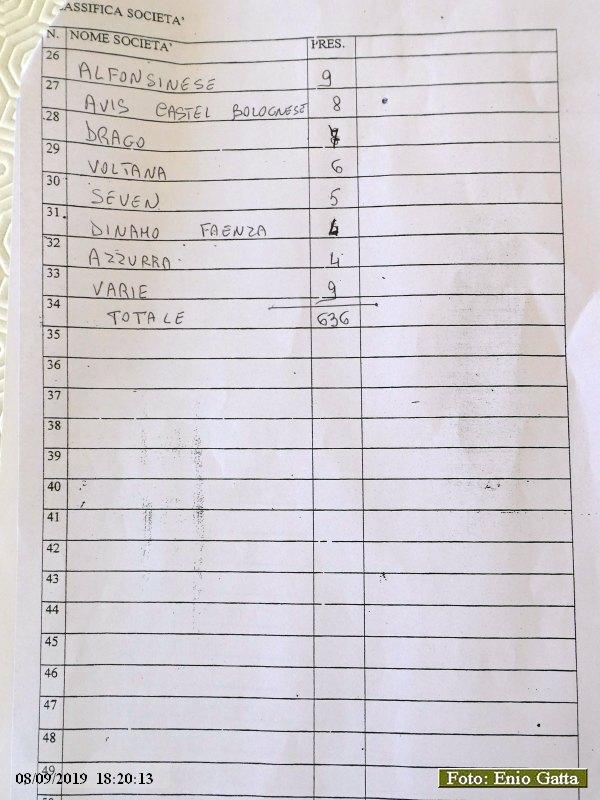 ASSIFICA SOCIETA'
N. NOME SOCIETA' PRES.
26 ALFONSINESE 9
27 AVIS CASTEL BOLOGNESE 8
28 DRAGO
29 VOLTANA 6
30 SEVEN 5
31 DINAMO FAENZA
32 AZZURRA 4
33 VARIE 9
34 TOTALE 636
35
36
37
38
39
40
41
42
43
44
45
46
47
48
49
08/09/2019 18:20:13
Foto: Enio Gatta